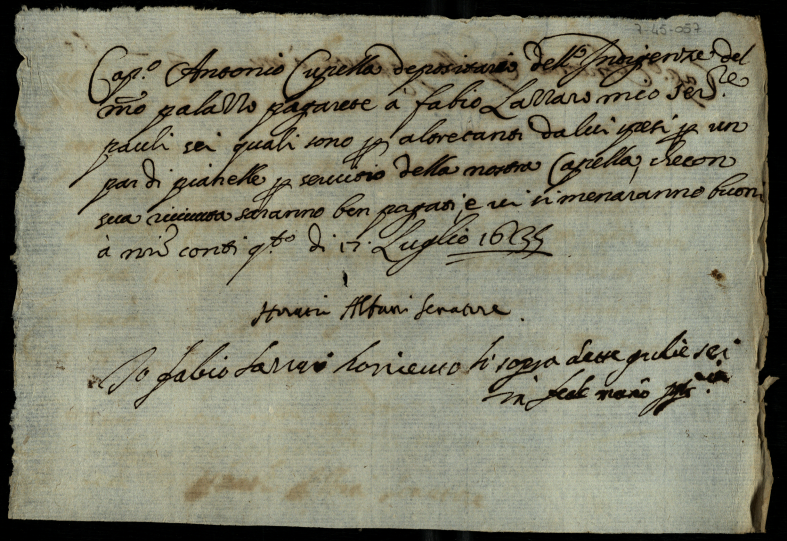 7-45-057
Cap.º Antonio Cupella depositario dell'Indigenze del
nr̃o palazzo pagarete à fabio Lazzaro mico Ser.re
pauli sei quali sono p altretanti da lui spesi p un
par di pianelle p servitio della nostra Capella, che con
sua ricevuta saranno ben pagati, e vi si menaranno buoni
à nr̃i conti q.to dì 17. Luglio 1635
Horatio Albani Senatore.
Io fabio Lazzari ho riceuto li sopra dette giulie sei
in fede mano pp.ia